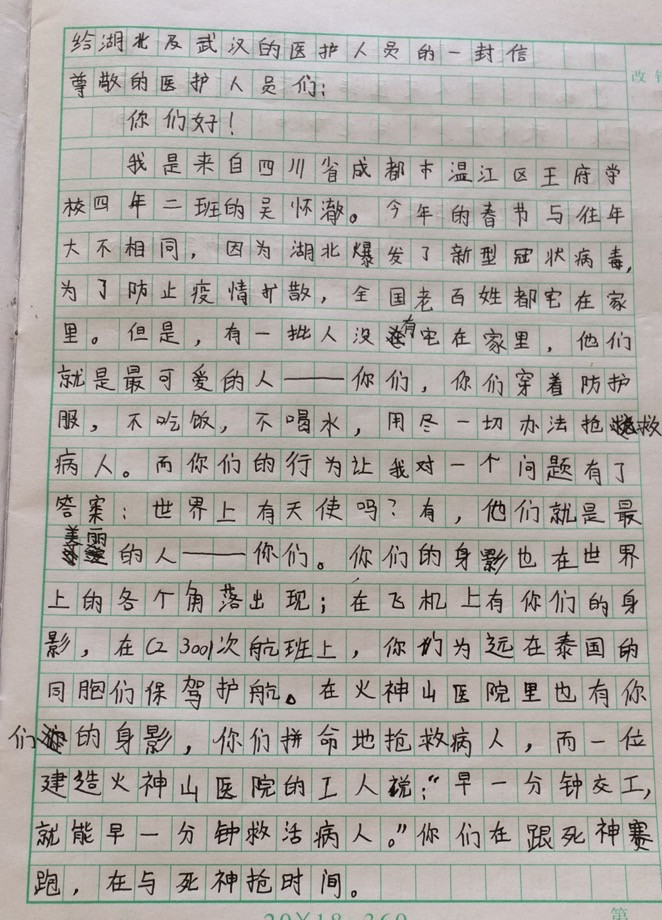 给湖北及武汉的医护人员的一封信
尊敬的医护人员们:
你们好!
我是来自四川省成都市温江区王府学
校四年二班的吴怀澈。今年的春节与往年
大不相同,因为湖北爆发了新型冠状病毒,
为了防止疫情扩散,全国老百姓都宅在家
里。但是,有一批人没有宅在家里,他们
就是最可爱的人——你们,你们穿着防护
服,不吃饭,不喝水,用尽一切办法抢救
病人。而你们的行为让我对一个问题有了
答案:世界上有天使吗?有,他们就是最
美丽的人——你们。你们的身影也在世界
上的各个角落出现;在飞机上有你们的身
影,在CZ3001次航班上,你们为远在泰国的
同胞们保驾护航。在火神山医院里也有你
们的身影,你们拼命地抢救病人,而一位
建造火神山医院的工人说:“早一分钟交工,
就能早一分钟救活病人。”你们在跟死神赛
跑,在与死神抢时间。